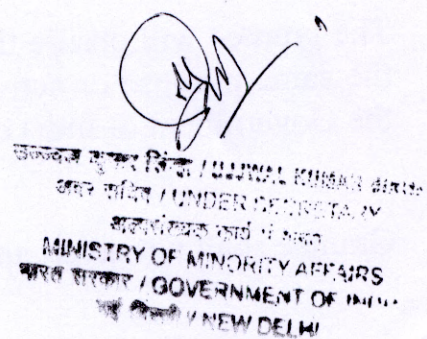 उज्ज्वल कुमार सिन्हा / UJJWAL KUMAR
अवर सचिव / UNDER SECRETARY
अल्पसंख्यक कार्य मंत्रालय
MINISTRY OF MINORITY AFFAIRS
भारत सरकार / GOVERNMENT OF INDIA
नई दिल्ली / NEW DELHI